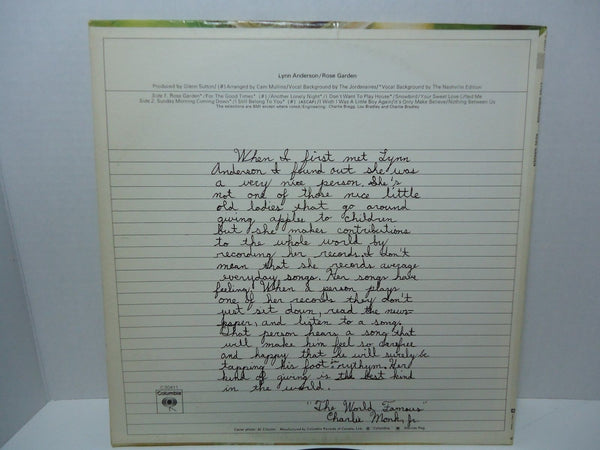 Lynn Anderson/Rose Garden
Produced by Glenn Sutton/(#)Arranged by Cam Mullins/Vocal Background by The Jordanaires/*Vocal Background by The Nashville Edition
Side 1. Rose Garden*/For The Good Times* (#)/Another Lonely Night*/I Don't Want To Play House*/Snowbird/Your Sweet Love Lifted Me
Side 2. Sunday Morning Coming Down*/I Still Belong To You* (#) (ASCAP)/I Wish I Was A Little Boy Again/It's Only Make Believe/Nothing Between Us
The selections are BMI except where noted./Engineering: Charlie Bragg, Lou Bradley and Charlie Bradley
When I first met Lynn
Anderson I found out she was
a very nice person. She's
not one of those nice little
old ladies that go around
giving apples to children
but she makes contributions
to the whole world by
recording her records. I don't
mean that she records average
everyday songs. Her songs have
feeling. When a person plays
one of her records they don't
just sit down, read the news-
paper, and listen to a song.
That person hears a song that
will make him feel so carefree
and happy that he will surely be
tapping his foot in rythym. Her
kind of giving is the best kind
in the world.
"The World Famous"
Charlie Monk, Jr.
C 30411
Columbia
Manufactured by Columbia Records of Canada, Ltd.